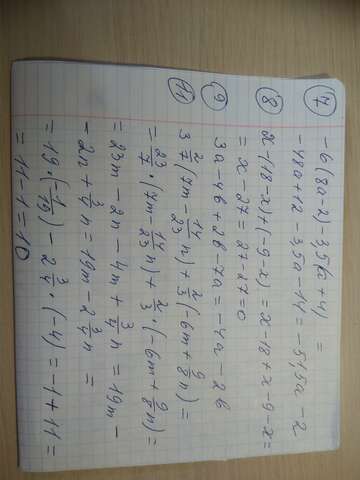 7 -6(8a-2)-3,5(a+4) =
-48a+12-3,5a-14=-51,5a-2
8 x-(18-x)+(-9-x)=x-18+x-9-x=
=x-27=27-27=0
9 3a-4b+2b-7a=-4a-2b
11 3 2/7 (7m - 14/23 n) + 2/3 (-6m + 9/8 n) =
= 23/7 · (7m - 14/23 n) + 2/3 · (-6m + 9/8 n) =
= 23m - 2n - 4m + 3/4 n = 19m -
- 2n + 3/4 n = 19m - 2 3/4 n =
= 19 · (-1/19) - 2 3/4 · (-4) = -1 + 11 =
= 11 - 1 = 10